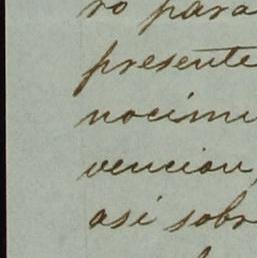 ro para
presente
nocimi
vencion,
asi sobr